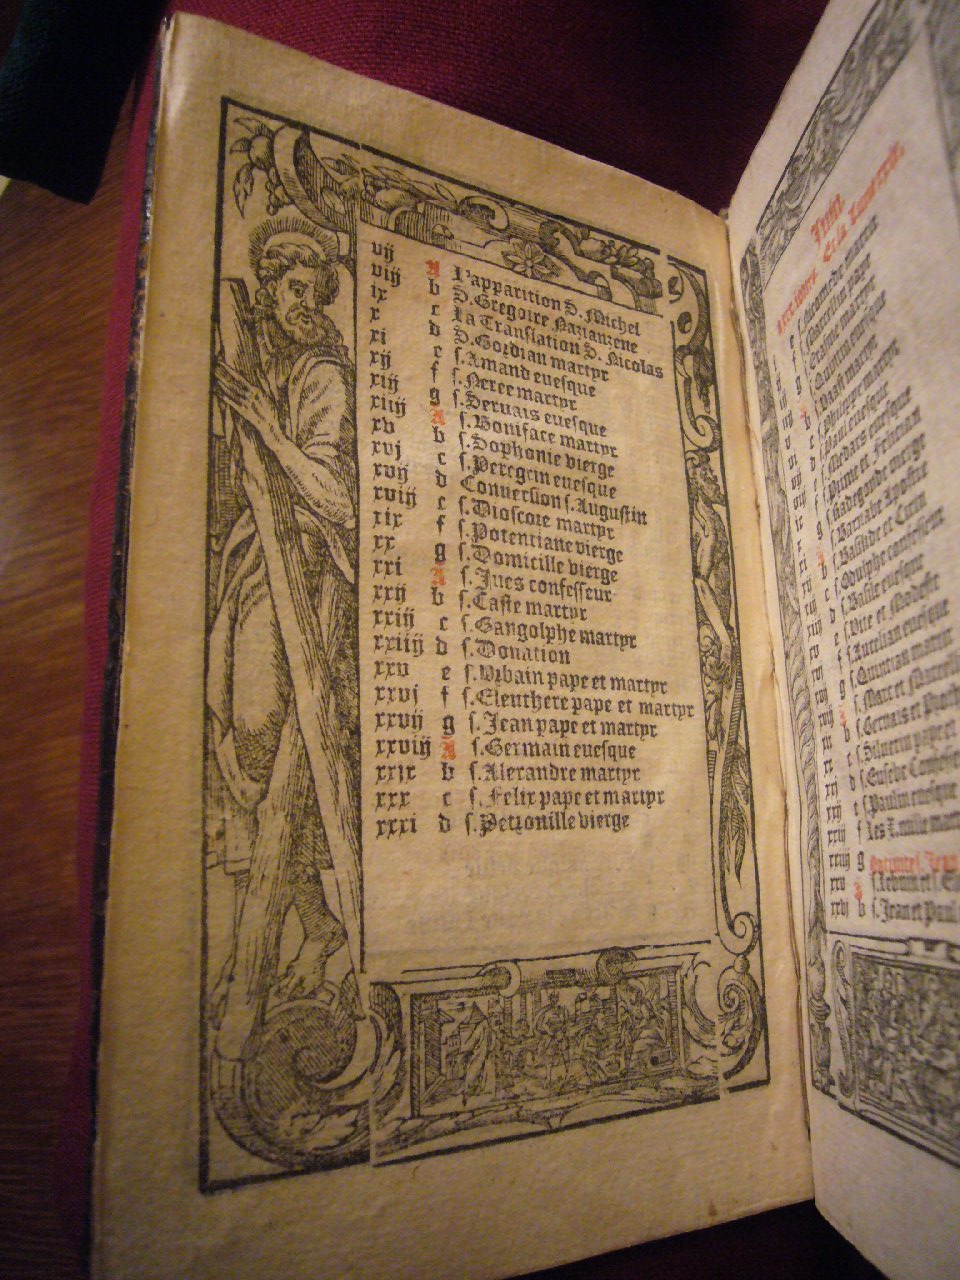 vij A L'apparition S. Michel
viij b S. Gregoire Nazanzene
ix c La Translation S. Nicolas
x d S. Gordian martyr
xi e s. Amand euesque
xij f s. Neree martyr
xiij g s. Seruais euesque
xiiij A s. Boniface martyr
xv b s. Sophonie vierge
xvj c s. Peregrin euesque
xvij d Conuersion s. Augustin
xviij e s. Dioscore martyr
xix f s. Potentiane vierge
xx g s. Domicille vierge
xxi A s. Iues confesseur
xxij b s. Caste martyr
xxiij c s. Gangolphe martyr
xxiiij d s. Donation
xxv e s. Vrbain pape et martyr
xxvj f s. Eleuthere pape et martyr
xxvij g s. Jean pape et martyr
xxviij A s. Germain euesque
xxix b s. Alexandre martyr
xxx c s. Felix pape et martyr
xxxi d s. Petronille vierge
Juin.
Et la Lune xxix.
e s.
f s. Marcellin pape
s. Vaast martyr
s. Philippe martyr
s. Paul euesque
s. Medard euesque
s. Prime et Felician
s. Barnabe Apostre
s. Basilide et Cirin
s. Basile euesque
s. Vite et Modeste
s. Aurelian euesque
s. Quintian martyr
s. Marc et Marcell
s. Geruais et Proth
s. Siluerin pape et
d s. Eusebe
e s. Paulin euesque
f Les X. mille mart
xxiiij g s. Jean
xxv A
xxvj b s. Jean et Paul